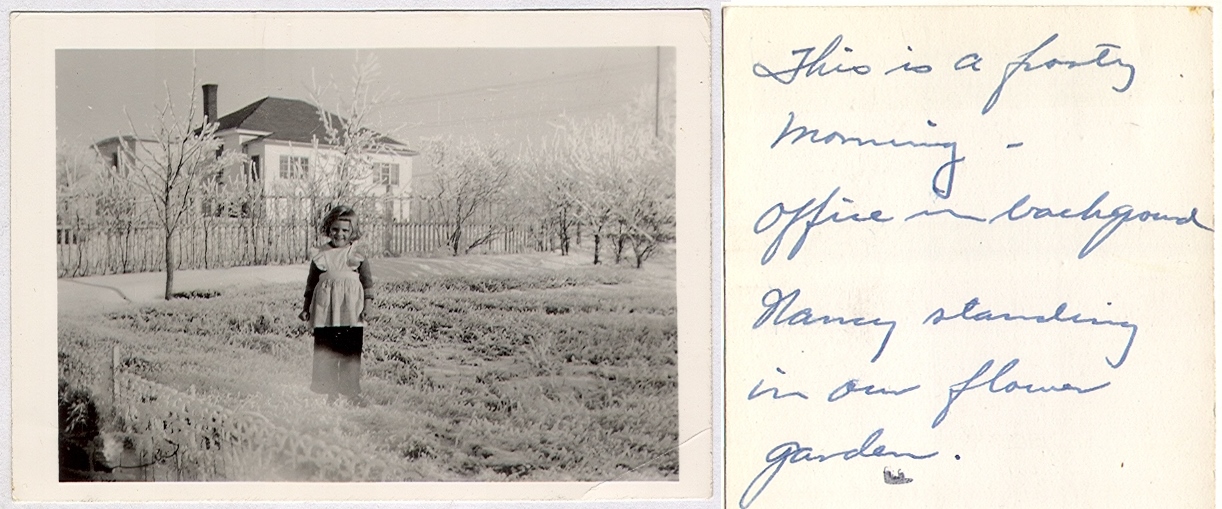 This is a frosty
Morning -
Office in backgound
Nancy standing
in our flower
garden.